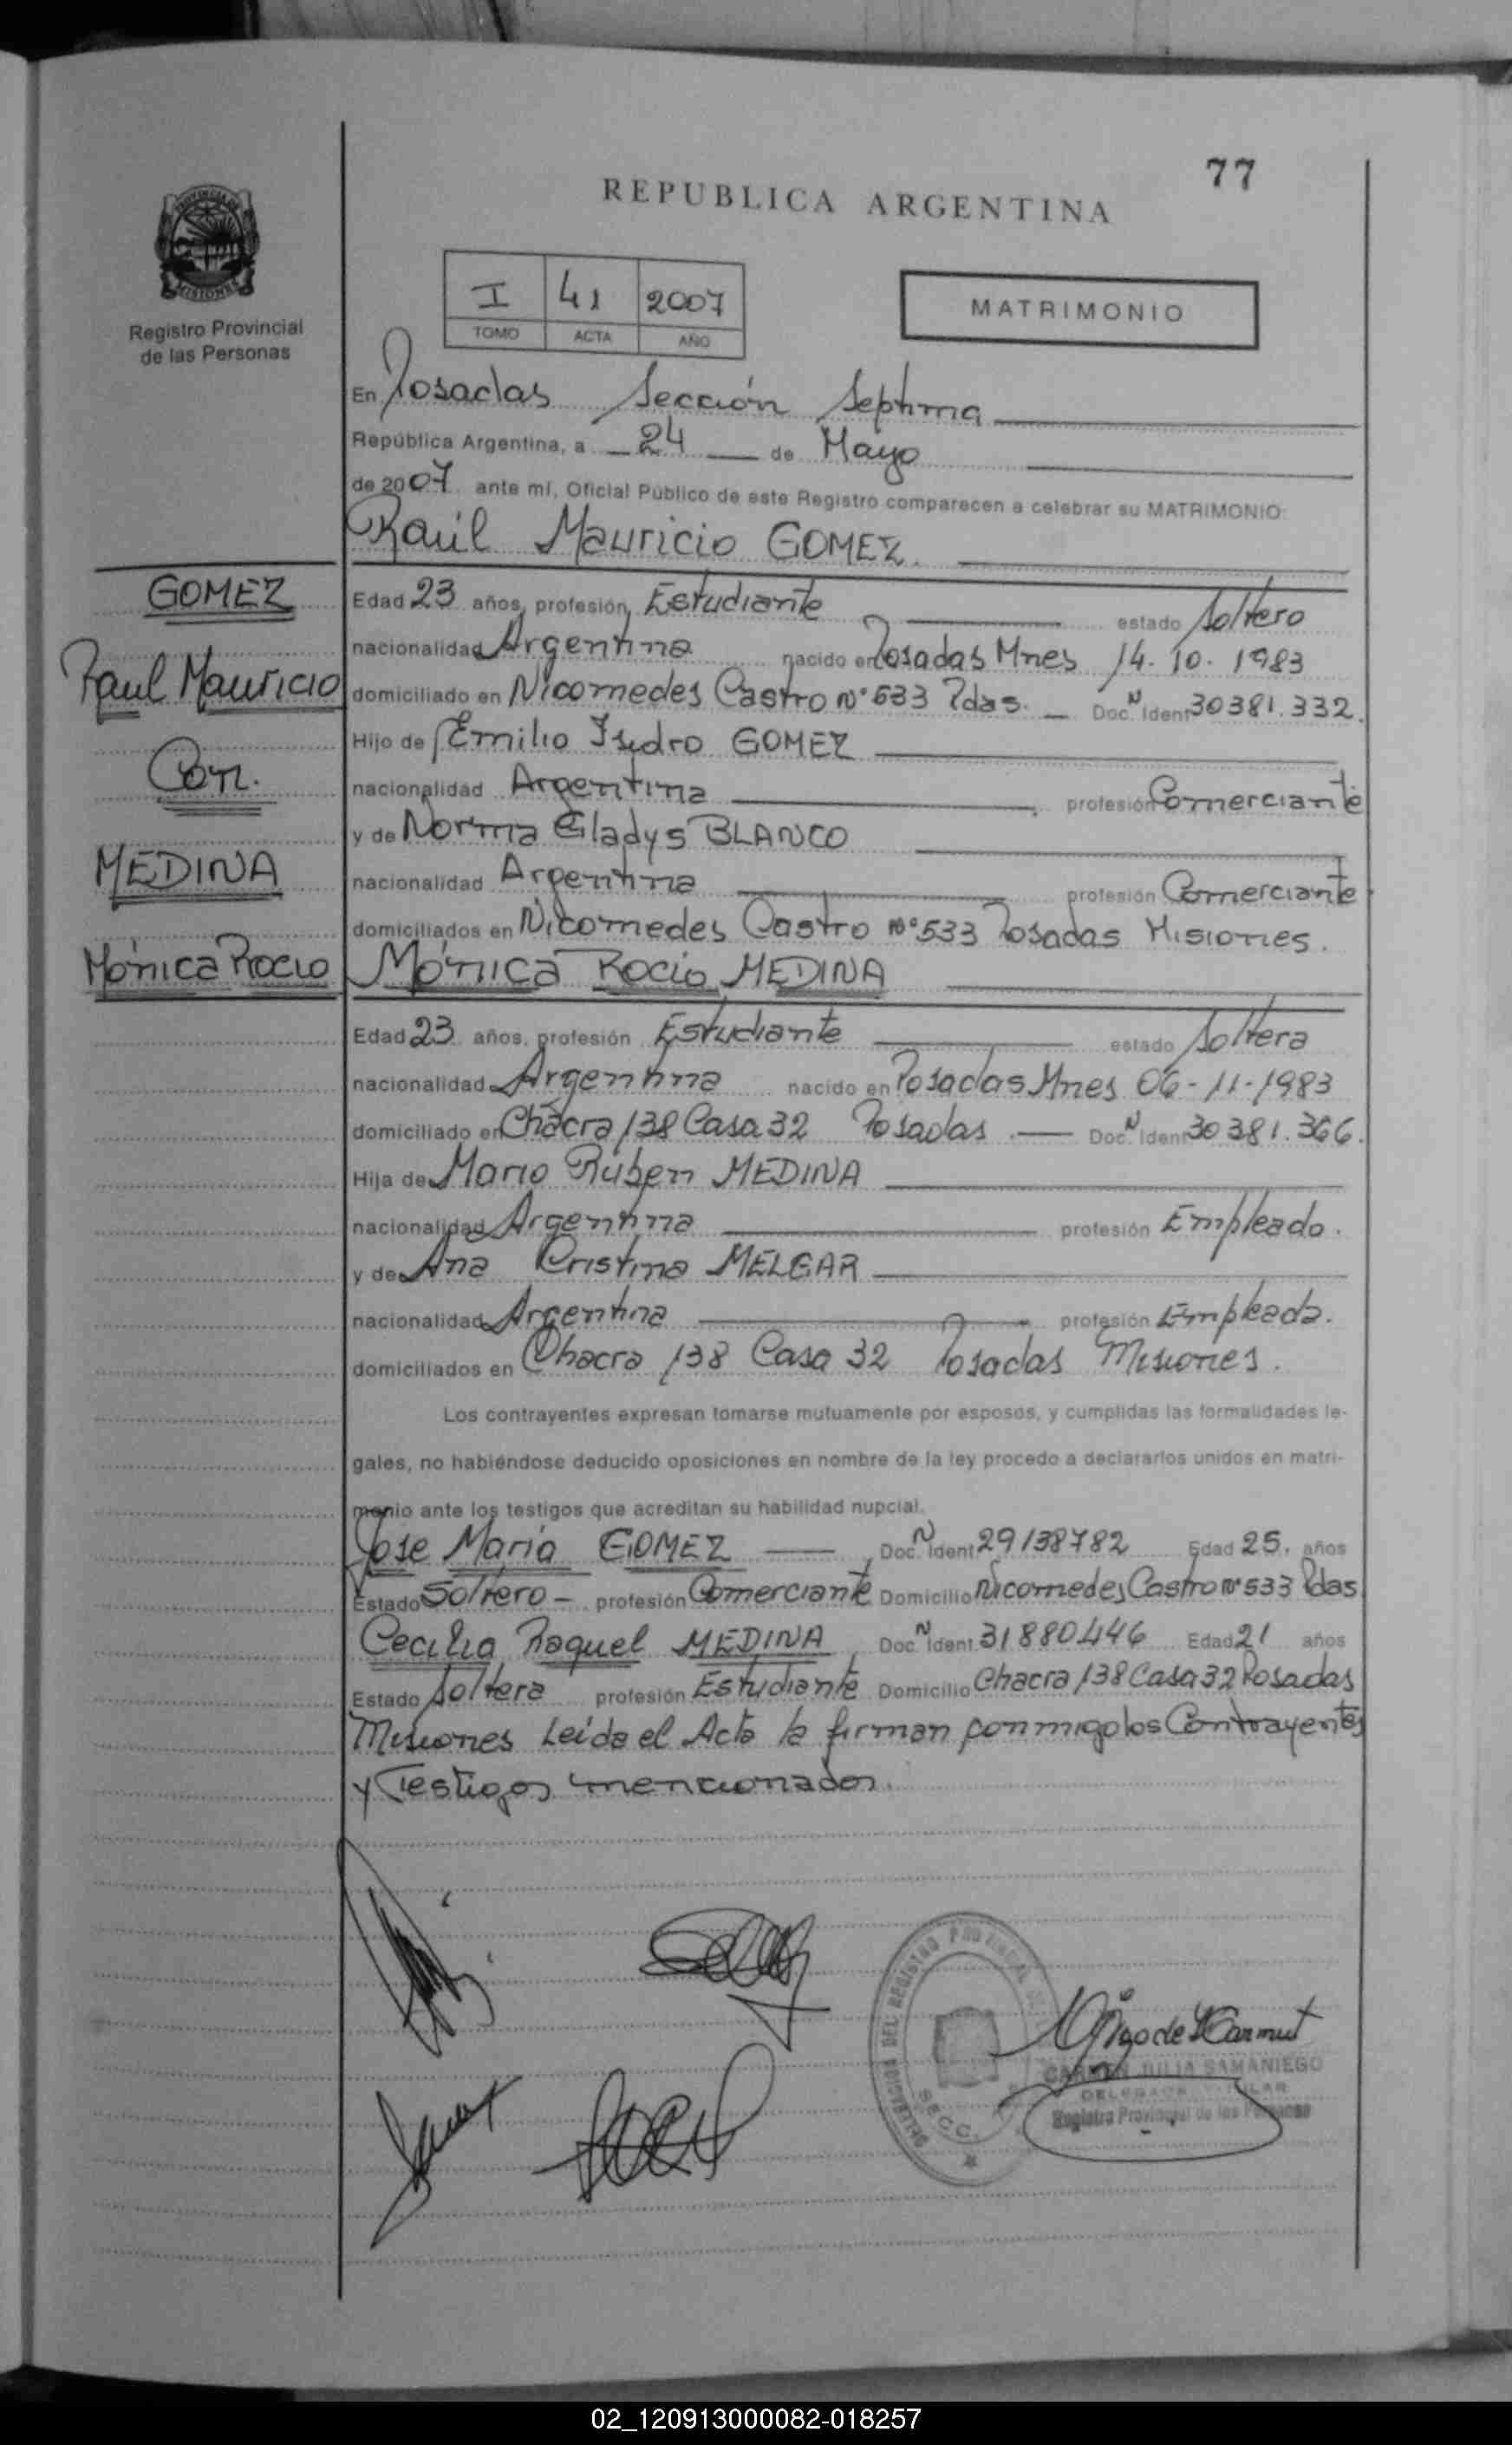 77
REPUBLICA ARGENTINA
PROVINCIA DE
MISIONES
Registro Provincial
de las Personas
I 41 2007
TOMO ACTA AÑO
MATRIMONIO
En Posadas Sección Septima
República Argentina, a 24 de Mayo
de 2007 ante mí, Oficial Público de este Registro comparecen a celebrar su MATRIMONIO:
Raúl Mauricio GOMEZ.
GOMEZ
Raul Mauricio
Con.
MEDINA
Mónica Rocio
Edad 23 años, profesión Estudiante estado Soltero
nacionalidad Argentina nacido en Posadas Mnes 14.10.1983
domiciliado en Nicomedes Castro Nº 533 Pdas. Doc. N Ident 30381.332.
Hijo de Emilio Isidro GOMEZ
nacionalidad Argentina profesión Comerciante
y de Norma Gladys BLANCO
nacionalidad Argentina profesión Comerciante
domiciliados en Nicomedes Castro Nº 533 Posadas Misiones.
Mónica Rocio MEDINA
Edad 23 años, profesión Estudiante estado Soltera
nacionalidad Argentina nacido en Posadas Mnes 06-11-1983
domiciliado en Chacra 138 Casa 32 Posadas. Doc. N Ident 30381.366.
Hija de Mario Rúben MEDINA
nacionalidad Argentina profesión Empleado.
y de Ana Cristina MELGAR
nacionalidad Argentina profesión Empleada.
domiciliados en Chacra 138 Casa 32 Posadas Misiones.
Los contrayentes expresan tomarse mutuamente por esposos, y cumplidas las formalidades le-
gales, no habiéndose deducido oposiciones en nombre de la ley procedo a declararlos unidos en matri-
monio ante los testigos que acreditan su habilidad nupcial.
Jose María GOMEZ Doc. N Ident 29138782 Edad 25. años
Estado Soltero - profesión Comerciante Domicilio Nicomedes Castro Nº 533 Pdas
Cecilia Raquel MEDINA Doc. N Ident. 31880446 Edad 21 años
Estado Soltera profesión Estudiante Domicilio Chacra 138 Casa 32 Posadas
Misiones Leída el Acta la firman conmigo los Contrayentes
y Testigos mencionados.
DELEGACION DEL REGISTRO PROVINCIAL
SECC.
CARMEN JULIA SAMANIEGO
DELEGADA TITULAR
Registro Provincial de las Personas
02_120913000082-018257